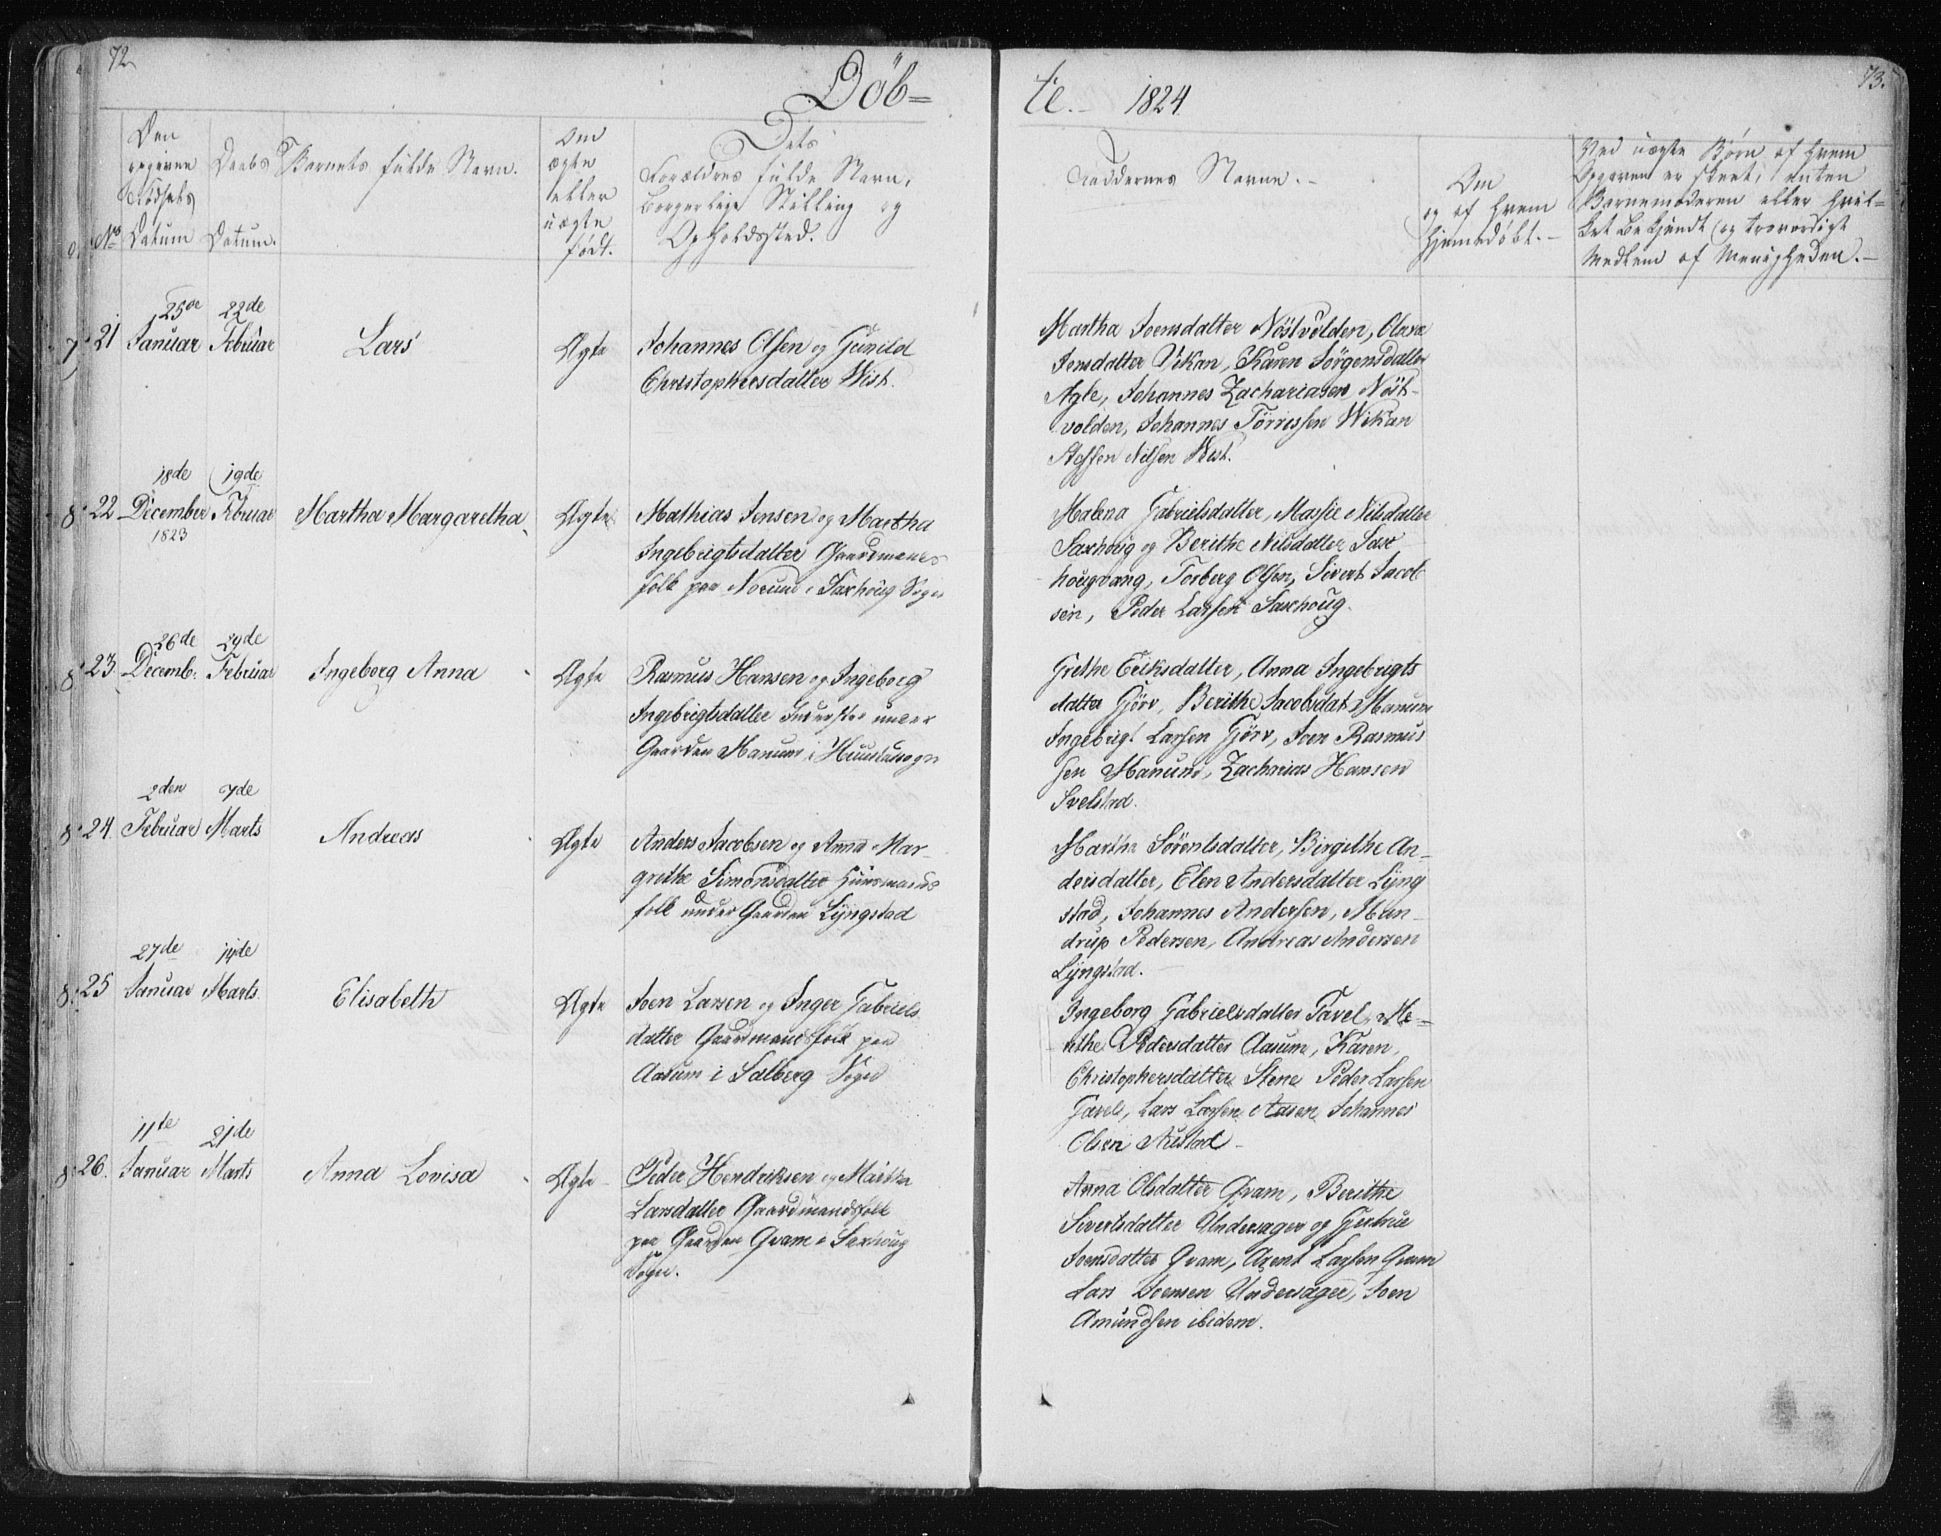 72.
Döb=
te. 1824
73.
No
Den
Datum
Daabs
Datum.
Barnets fulde Navn.
Om
ægte
eller
uægte
født.
Dets
Forældres fulde Navn,
Borgerlige Stilling og
Opholdssted.
Faddernes Navne.
Om
og af hvem
hjemmedöbt.
Ved uægte Börn af hvem
Opgaven er skeet, enten
Barnemoderen eller hvil-
ket bekjendt og troværdigt
Medlem af Menigheden.
7 21
25de Januar
22de Februar
Lars
Ægte
Johannes Olsen og Gunild
Christophersdatter Wist.
Martha Joensdatter Nöstvolden, Olava
Jensdatter Vikan, Karen Jörgensdatter
Agle, Johannes Zachariasen Nöst-
volden, Johannes Törrissen Wikan
Nilsen Wist.
8 22
18de December 1823
19de Februar
Martha Margaretha
Ægte
Mathias Jensen og Martha
Ingebrigtsdatter Gaardmands
folk paa Norum i Saxhoug Sogn
Malena Gabrielsdatter, Masie Nilsdatter
Saxhoug og Berithe Nilsdatter Sax
hougvang, Torberg Olsen, Sivert Jacob
sen, Peder Larsen Saxhoug.
8 23
26de Decemb.
29de Februar
Ingeborg Anna
Ægte
Rasmus Hansen og Ingeborg
Ingebrigtsdatter Inderster under
Gaarden Manum i Huustadsogn
Grethe Eriksdatter, Anna Ingebrigts
datter Gjörv, Berithe Jacobsdat: Manum
Ingebrigt Larsen Gjörv, Joen Rasmus
sen Manum, Zacharias Hansen
Svelstad.
8 24.
2den Februar
7de Marts
Andreas
Ægte
Anders Jacobsen og Anna Mar-
grethe Simonsdatter Huusmands
folk under Gaarden Lyngstad
Marthe Sörensdatter, Birgithe An-
dersdatter, Elen Andersdatter Lyng
stad, Johannes Andersen, Man-
drup Pedersen, Andreas Andersen
Lyngstad.
8 25
27de Januar
14de Marts.
Elisabeth
Ægte
Joen Larsen og Inger Gabriels
datter Gaardmandsfolk paa
Aasum i Salberg Sogn
Ingeborg Gabrielsdatter Tavel, Me-
rethe Pedersdatter Aasum, Karen
Christophersdatter Stene Peder Larsen
Lars Larsen Aasen Johannes
Olsen Austad
8 26.
11te Januar
21de Marts
Anna Lovisa
Ægte
Peder Hendriksen og Martha
Larsdatter Gaardmandsfolk
paa Gaarden Qvam i Saxhoug
Sogn.
Anna Olsdatter Qvam, Berithe
Sivertsdatter Undersager og Gjertrue
Joensdatter Qvam, Arent Larsen Qvam
Lars Joensen Undersager, Joen
Amundsen ibidem.